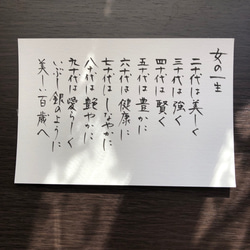 女の一生
二十代は美しく
三十代は強く
四十代は賢く
五十代は豊かに
六十代は健康に
七十代はしなやかに
八十代は艶やかに
九十代は愛らしく
いぶし銀のように
美しい百歳へ